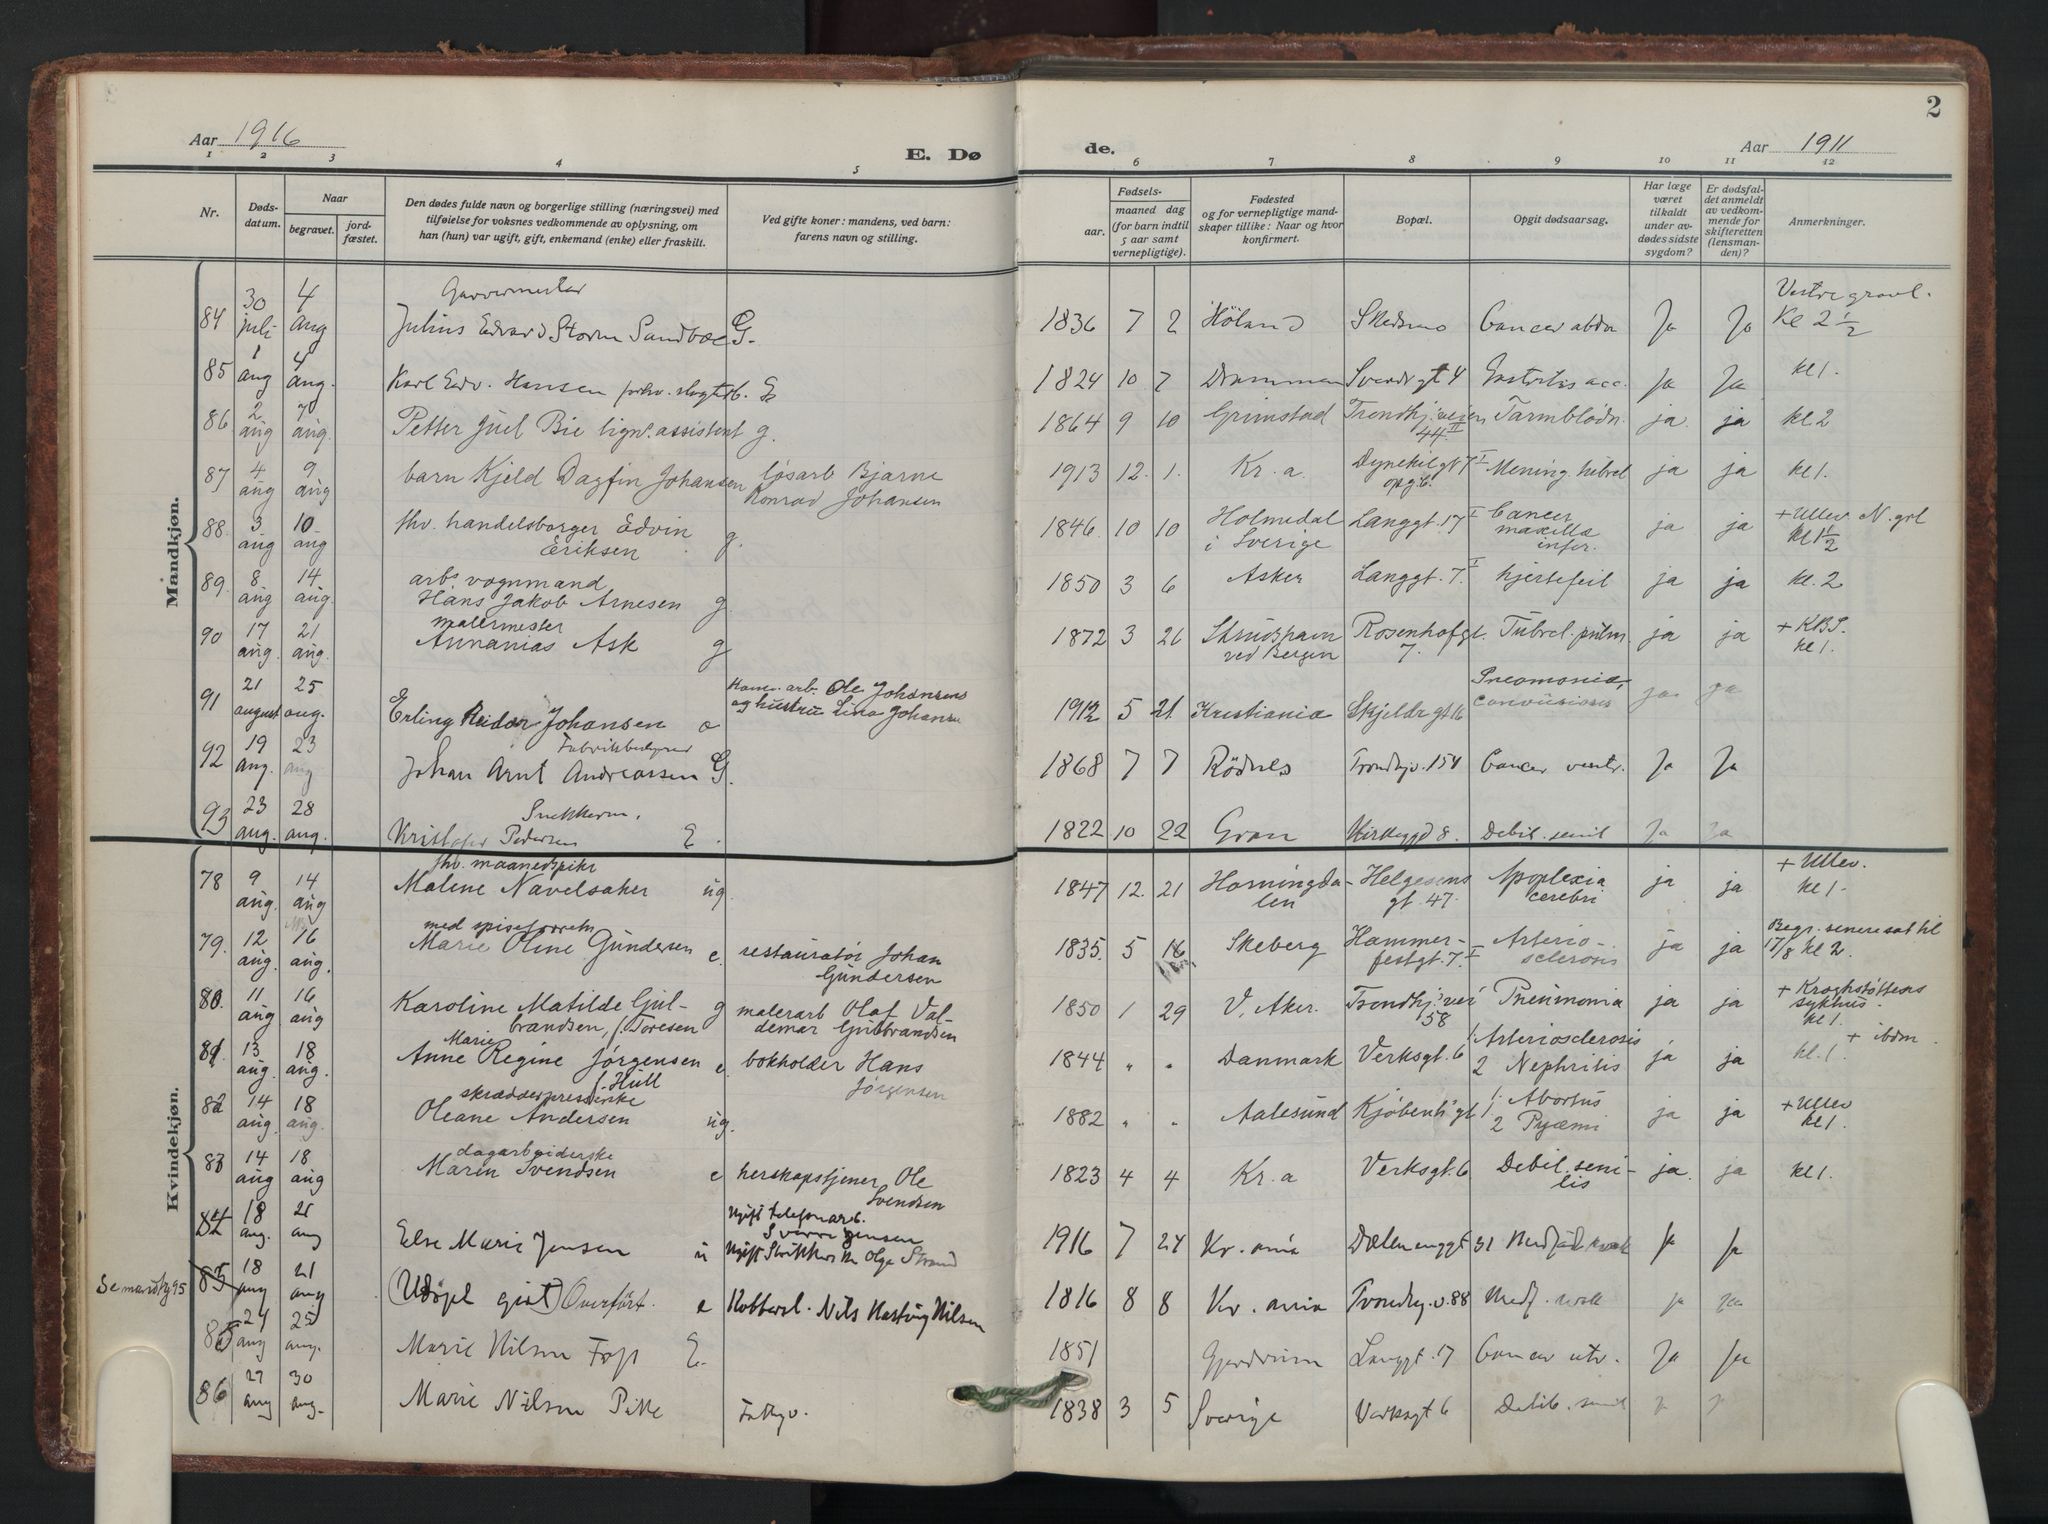 2
Aar 1916
E. Dø
de.
Aar 1911
1 2 3 4 5 6 7 8 9 10 11 12
Nr.
Døds-
datum.
Naar
begravet.
jord-
fæstet.
Den dødes fulde navn og borgerlige stilling (næringsvei) med
tilføielse for voksnes vedkommende av oplysning, om
han (hun) var ugift, gift, enkemand (enke) eller fraskilt.
Ved gifte koner: mandens, ved barn:
farens navn og stilling.
Fødsels-
aar.
maaned dag
(for barn indtil
5 aar samt
vernepligtige).
Fødested
og for vernepligtige mand-
skaper tillike: Naar og hvor
konfirmert.
Bopæl.
Opgit dødsaarsag.
Har læge
været
tilkaldt
under av-
dødes sidste
sygdom?
Er dødsfal-
det anmeldt
av vedkom-
mende for
skifteretten
(lensman-
den)?
Anmerkninger.
Mandkjøn.
Garvermester Vestre gravl.
84 30 juli 4 aug Julius Edvard Storm Sandbæ G. 1836 7 2 Høland Skedsmo Cancer abdo Ja Ja Kl 2 1/2
85 1 aug 4 aug. Karl Edv. Hansen E 1824 10 7 Drammen gt 4 Ja Ja kl 1.
86 2 aug 7 aug. Petter Juel Bie lign. assistent g. 1864 9 10 Grimstad Trondhj. veien 44 II Tarmblødn. ja ja kl. 2
87 4 aug 9 aug barn Kjeld Dagfin Johansen løsarb Bjarne
Konrad Johansen 1913 12. 1. Kr. a Dynekilgt 7 I opg. 6. Mening. tubrel ja ja kl 1.
88. 3 aug 10 aug fhv. handelsborger Edvin
Eriksen g. 1846 10 10 Holmedal
i Sverige Langgt. 17 I Cancer
maxilla
infer. ja ja + Ullev. N. grl
kl 1 1/2
89. 8 aug 14 aug. arbs vognmand
Hans Jakob Arnesen g. 1850 3 6 Asker Langgt. 7. I hjertefeil ja ja kl. 2
90 17 aug. 21 aug. malermester
Annanias Ask g 1872 3 21 Strudshavn
ved Bergen Rosenhofgt.
7. Tubrel. pulm. ja ja + KBS.
kl 1.
91 21 august 25 aug. Erling Reidar Johansen arb. Ole Johansens
og hustru Lina Johansen 1912 5 21 Kristiania Skjeldr gt 16 Pneomonia,
ja ja
92 19 aug. 23 aug Johan Arnt Andreassen G. 1868 7 7 Rödnes Trondhjv. 154 Cancer ventr. Ja Ja
93 23 aug. 28 aug. Snekkerm.
Kristofer Pedersen E. 1822 10 22 Gran Kirkeygd 8. Debil. senil Ja Ja
Kvindekjøn.
78 9 aug. 14 aug fhv. maanedspike
Malene Navelsaker ug. 1847 12. 21 Horningda-
len Helgesens
gt. 47. Apoplexia
cerebri ja ja + Ullev.
kl 1.
79. 12 aug. 16 aug. med spiseforretn
Marie Oline Gundersen e. restauratør Johan
Gundersen 1835. 5 16 Skeberg Hammer-
festgt. 7. I Arterio-
sclerosis ja ja Begr. senere sat til
17/8 kl 2.
80. 11 aug 16 aug Karoline Matilde Gul-
brandsen, f. Toresen g malerarb Olaf Val-
demar Gulbrandsen 1850 1 29 V. Aker. Trondhj. vei
58 Pneumonia ja ja + Kroghstøttens
sykhus.
kl 1.
81. 13 aug. 18 aug. Marie
Anne Regine Jørgensen
f. Hull e. bokholder Hans
Jørgensen 1844 " " Danmark Verksgt. 6 1 Arteriosclerosis
2 Nephritis ja ja + ibdm.
kl. 1.
82 14 aug. 18 aug. skrædderpresserske
Oleane Andersen ug. 1882 " " Aalesund Kjøbenh gt 1 1. Abortus
2 Pyæmi ja ja + Ullev
kl 1.
83 14 aug 18 aug dagarbeiderske
Maren Svendsen e herskapstjener Ole
Svendsen 1823 4 4 Kr. a Verksgt. 6 Debil. seni-
lis ja. ja kl 1.
84 18 aug. 21 aug Else Marie Jensen u Ugift telefonarb.
Sverre Jensen
Ugift Olga Strand 1916 7 24 Kr. ania Dælenenggt 31 Medfød ja ja
Se mandkj 95 85 18 aug 21 aug (Udøpt gut) Overført. e Kobbersl. Nils Hartvig Nilsen 1816 8 8 Kr. ania Trondhj. v. 88 ja ja
85 24 aug 25 aug. Marie Nilsen E. 1851 Gjerdrum Langgt. 17 Cancer utr. Ja ja
86 27 aug 30 aug. Marie Nilsen Fattigv. 1838 3 5 Sverige Verksgt 6 Debil. senil ja ja